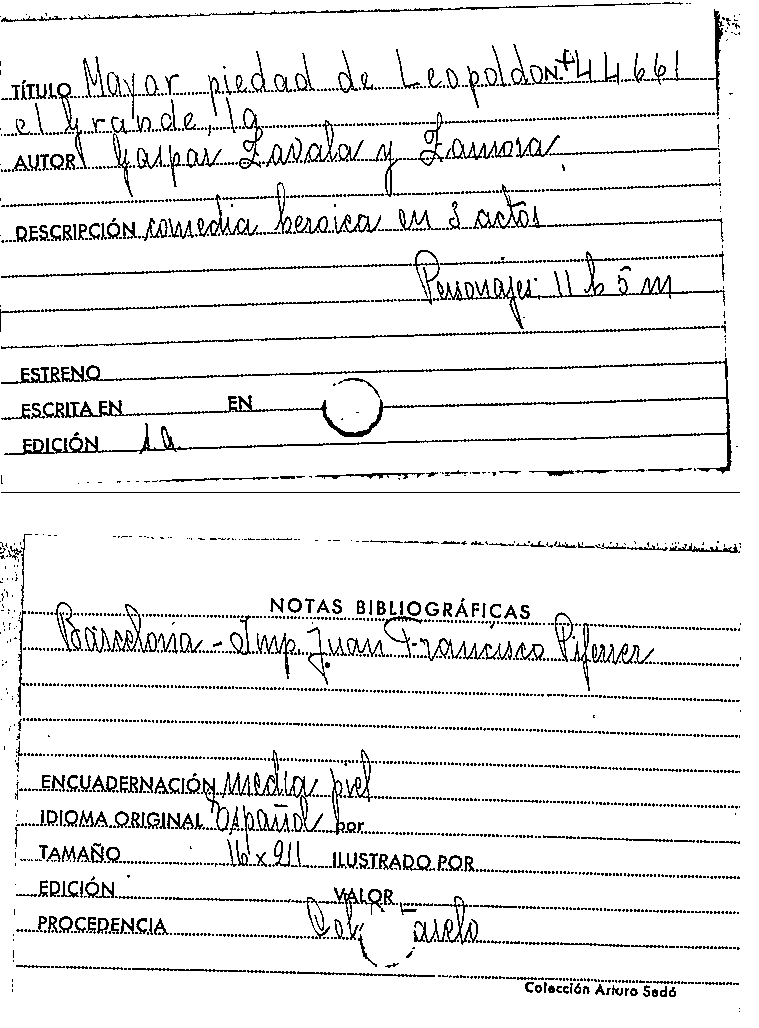 TÍTULO Mayor piedad de Leopoldo N.º 44661
el Grande, la
AUTOR Gaspar Zavala y Zamora
DESCRIPCIÓN comedia heroica en 3 actos
Personajes: 11 h 5 m
ESTRENO
ESCRITA EN EN
EDICIÓN 1a
NOTAS BIBLIOGRÁFICAS
Barcelona - Imp. Juan Francisco Piferrer
ENCUADERNACIÓN media piel
IDIOMA ORIGINAL español por
TAMAÑO ILUSTRADO POR
EDICIÓN VALOR
PROCEDENCIA
Colección Arturo Sedó